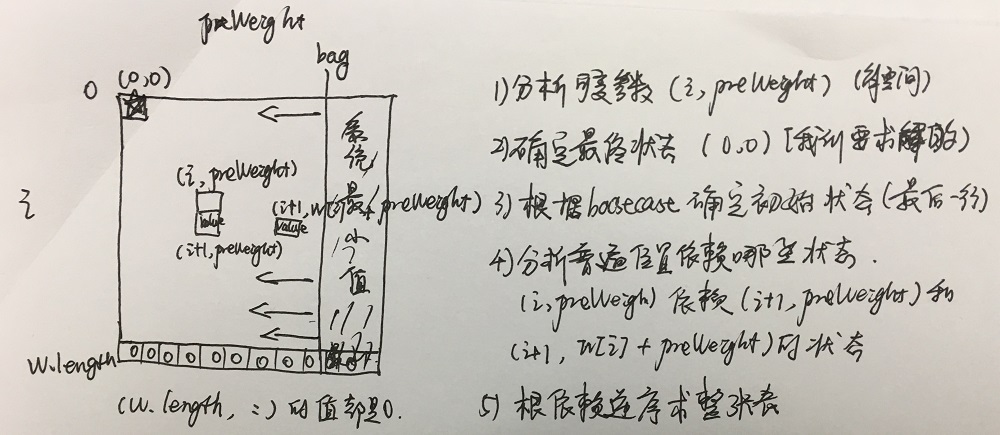 preWeight
bag
0
(0,0)
i
系统最小值
(i, preWeight)
value
(i+1, preWeight)
(i+1, w[i] + preWeight)
value
w.length
0 0 0 0 0 0 0 0 0
(w.length, :) 的值都是0.
1) 分析可变参数 (i, preWeight)
2) 确定最终状态 (0,0) [我们要求解的)
3) 根据basecase 确定初始状态 (最后一行)
4) 分析普遍位置依赖哪些状态.
(i, preWeigh) 依赖 (i+1, preWeight) 和
(i+1, w[i] + preWeight) 的状态
5) 根依赖逆序求整张表